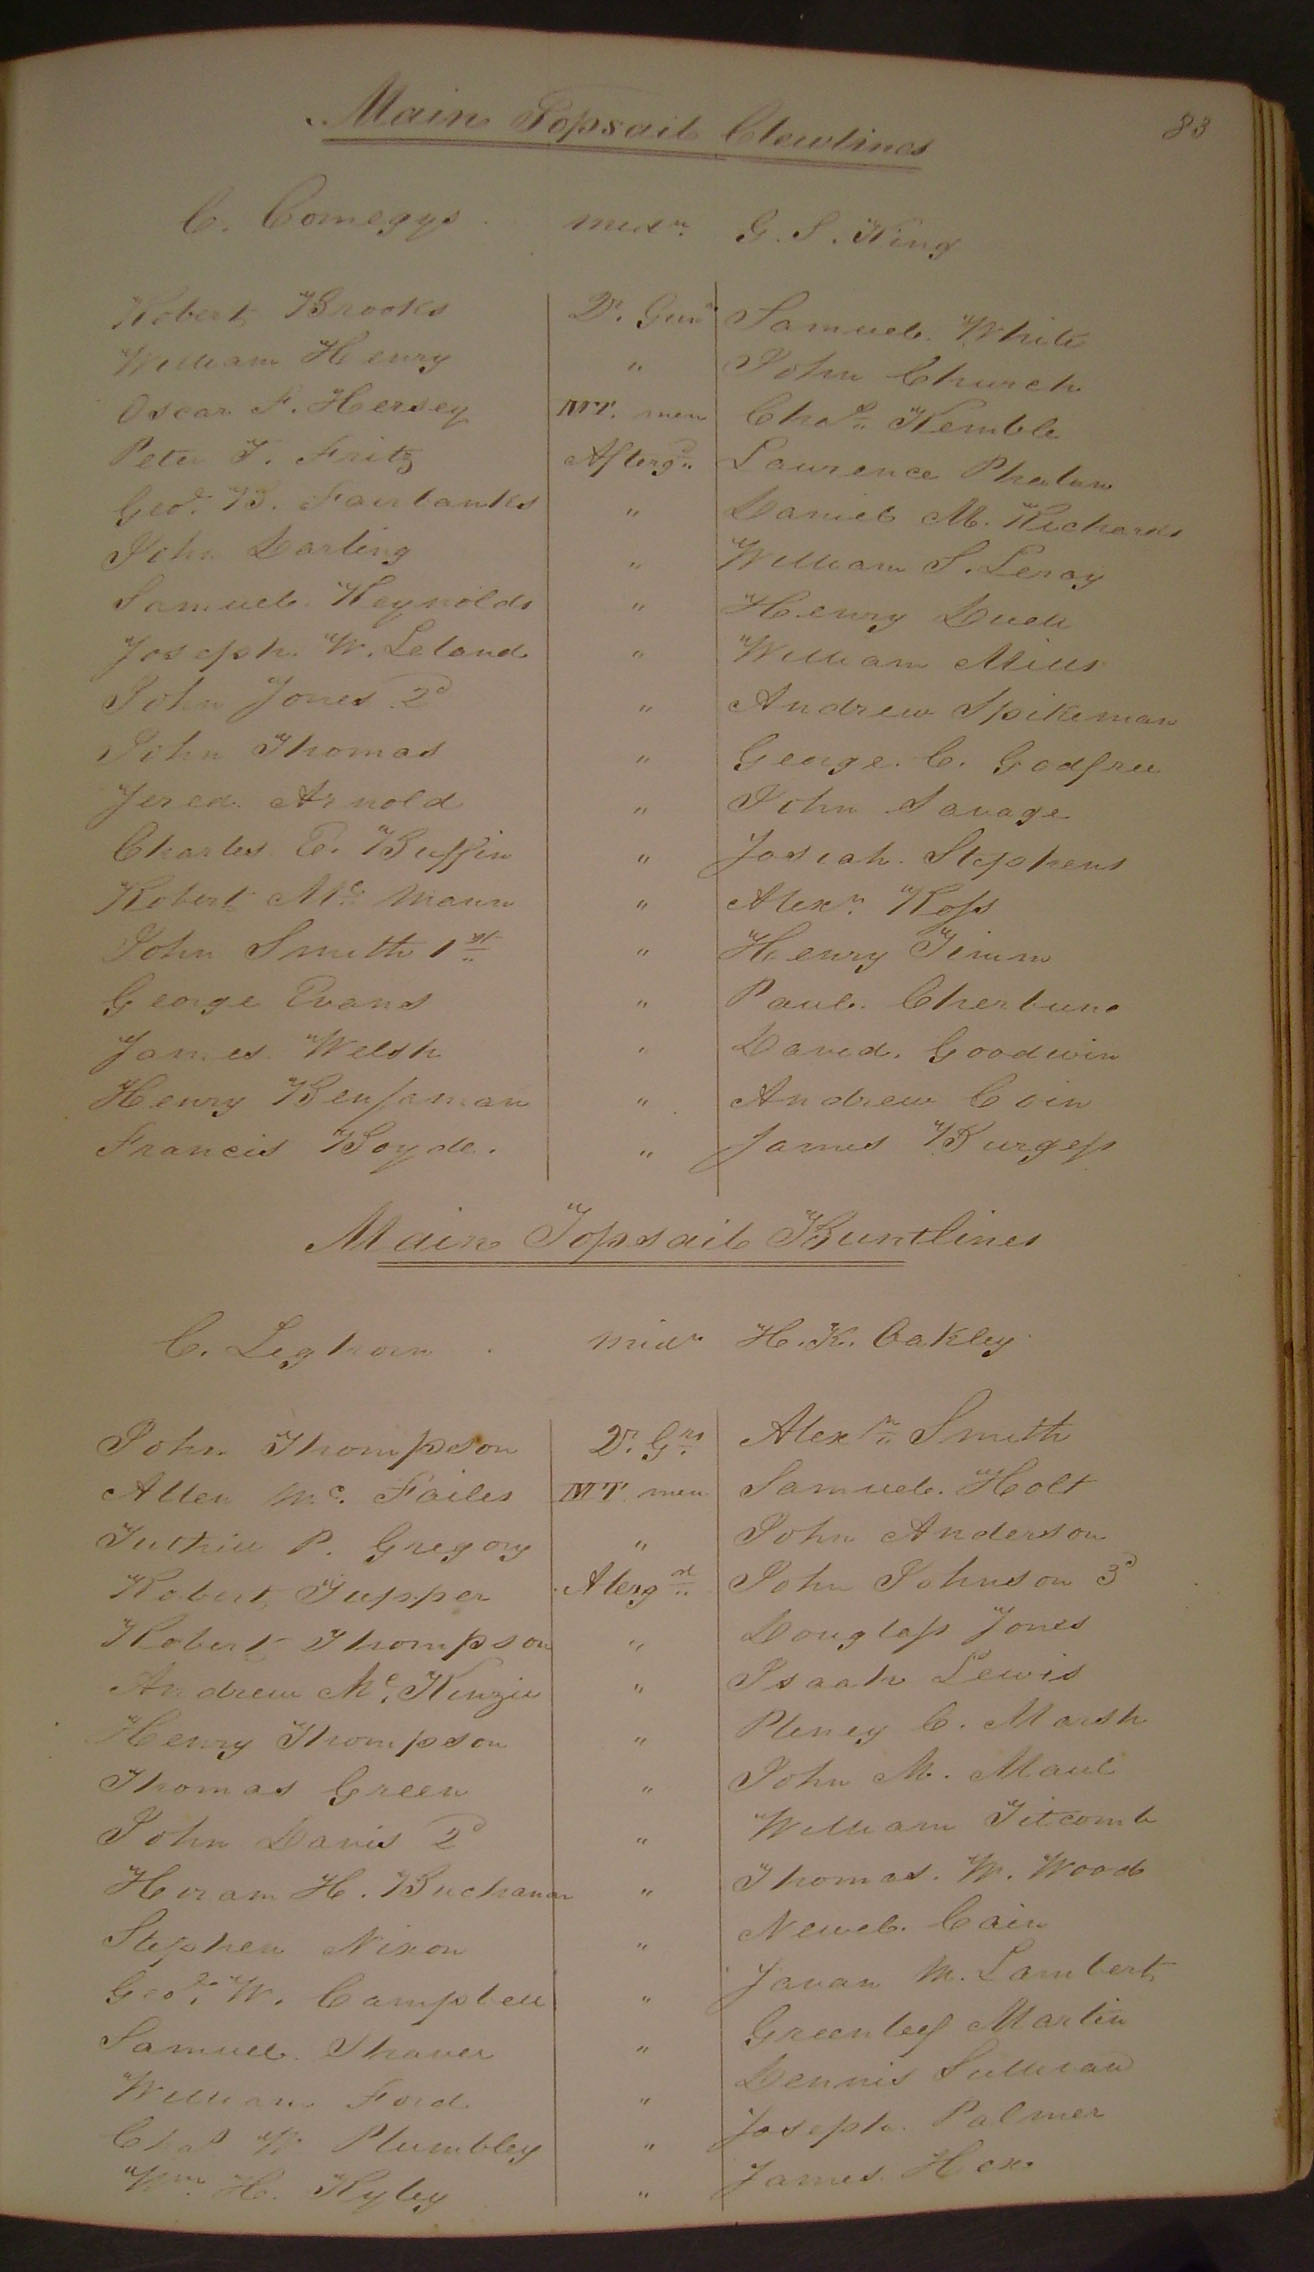 Main Topsail Clewlines 83
C. Comegys midn. G. S. King
Robert Brooks Qr. Gunr Samuel White
William Henry " John Church
Oscar F. Hersey MT. men Chas. Kemble
Peter T. Fritz Aftergd. Laurence Phalan
Geoe. B. Fairbanks " Daniel M. Richards
John Darling " William S. Leroy
Samuel Reynolds " Henry Duell
Joseph W. Leland " William Mills
John Jones 2d " Andrew Spikeman
John Thomas " George C. Godfree
Jered Arnold " John Savage
Charles E. Buffin " Josiah Stephens
Robert Mc Mann " Alexr. Ross
John Smith 1st " Henry Timm
George Evans " Paul
James Welsh " David Goodwin
Henry Benjaman " Andrew Coin
Francis Boyde. " James Burgess
Main Topsail Buntlines
C. Leghorn midn H. K. Oakley
John Thompson Qr. Grs Alexr. Smith
Allen Mc. Failes MT men Samuel Holt
Tuthill P. Gregory " John Anderson
Robert Tupper Atergd. John Johnson 3d
Robert Thompson " Douglass Jones
Andrew Mc. Kinzie " Isaah Lewis
Henry Thompson " Pleney C. Marsh
Thomas Green " John M. Maul
John Davis 2d " William Titcomb
Hiram H. Buchanan " Thomas W. Wood
Stephen Nixon " Newel Cain
Geoe. W. Campbell " Javan M. Lambert
Samuel Shaver " Greenleef Martin
William Ford " Dennis Sullivan
Chas W. Plumbley " Joseph Palmer
Wm. H. Ryley " James Hex